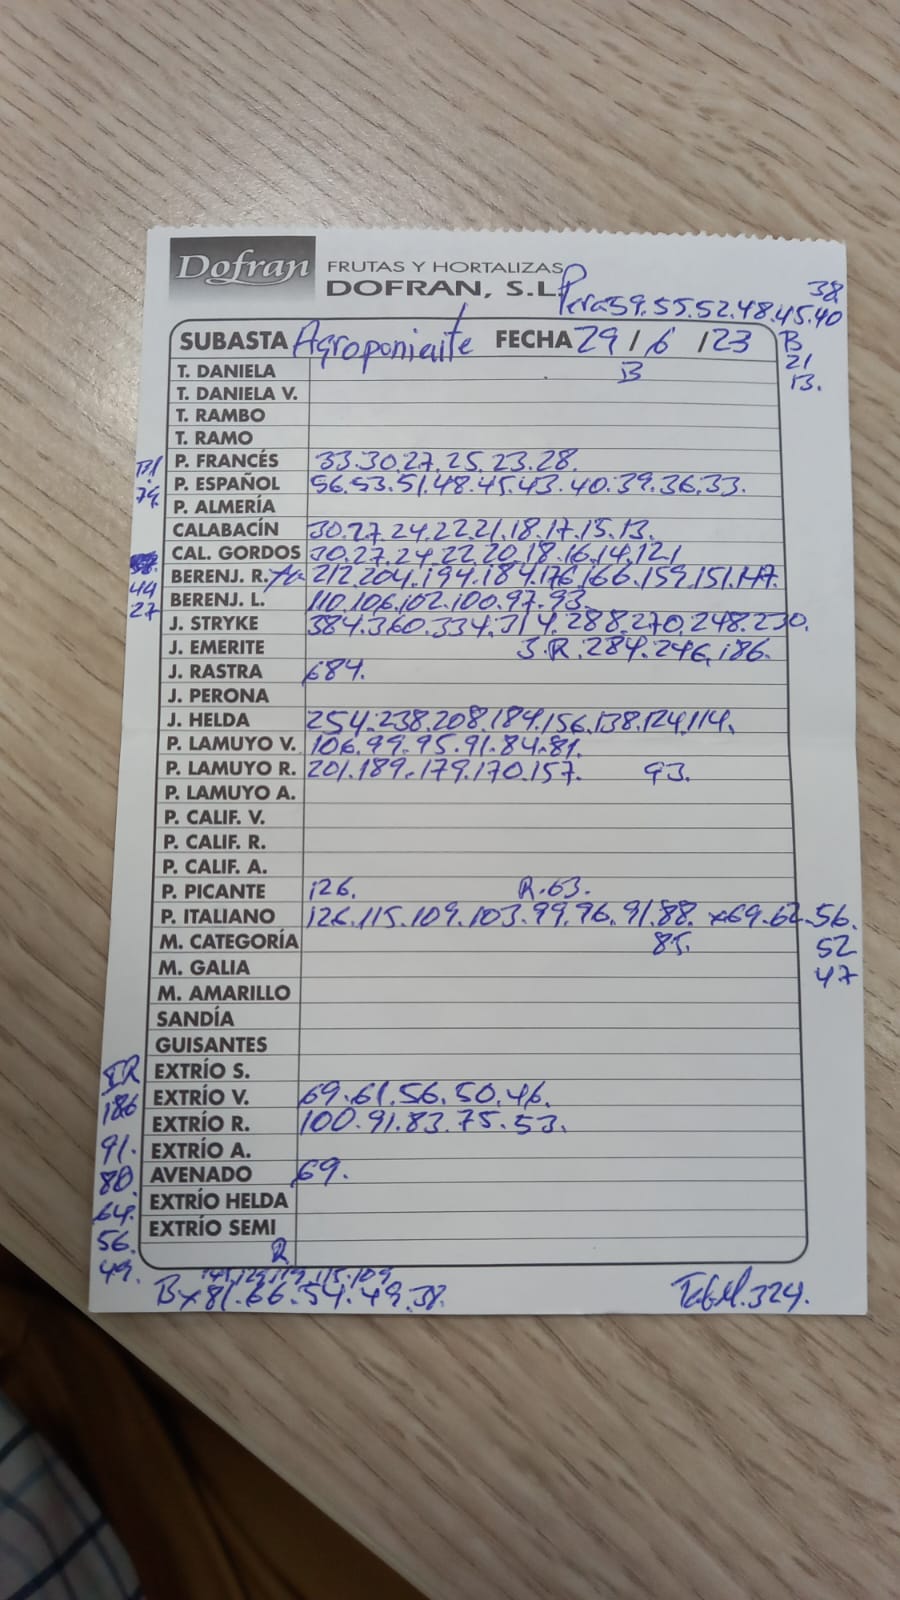 Dofran FRUTAS Y HORTALIZAS
DOFRAN, S.L.
38
Pera 59.55.52.48.45.40
SUBASTA Agroponiente FECHA 29 / 6 / 23 B
21
13.
T. DANIELA B
T. DANIELA V.
T. RAMBO
T. RAMO
P. FRANCÉS 33.30.27.25.23.28.
79. P. ESPAÑOL 56.53.51.48.45.43.40.39.36.33.
P. ALMERÍA
CALABACÍN 30.27.24.22.21.18.17.15.13.
CAL. GORDOS 30.27.24.22.20.18.16.14.12
44 BERENJ. R. 212.204.194.184.176.166.159.151.147.
27 BERENJ. L. 110.106.102.100.97.93.
J. STRYKE 384.360.334.314.288.270.248.230.
J. EMERITE S.R. 284.246.186.
J. RASTRA 684.
J. PERONA
J. HELDA 254.238.208.184.156.138.124.114.
P. LAMUYO V. 106.99.95.91.84.81.
P. LAMUYO R. 201.189.179.170.157. 93.
P. LAMUYO A.
P. CALIF. V.
P. CALIF. R.
P. CALIF. A.
P. PICANTE 126. R.63.
P. ITALIANO 126.115.109.103.99.96.91.88. x69.62.56.
M. CATEGORÍA 85. 52
M. GALIA 47
M. AMARILLO
SANDÍA
GUISANTES
EXTRÍO S.
186 EXTRÍO V. 69.61.56.50.46.
91. EXTRÍO R. 100.91.83.75.53.
EXTRÍO A.
80. AVENADO 69.
64. EXTRÍO HELDA
56. EXTRÍO SEMI
49. R
129.119.115.109
B x81.66.54.49.38.
324.